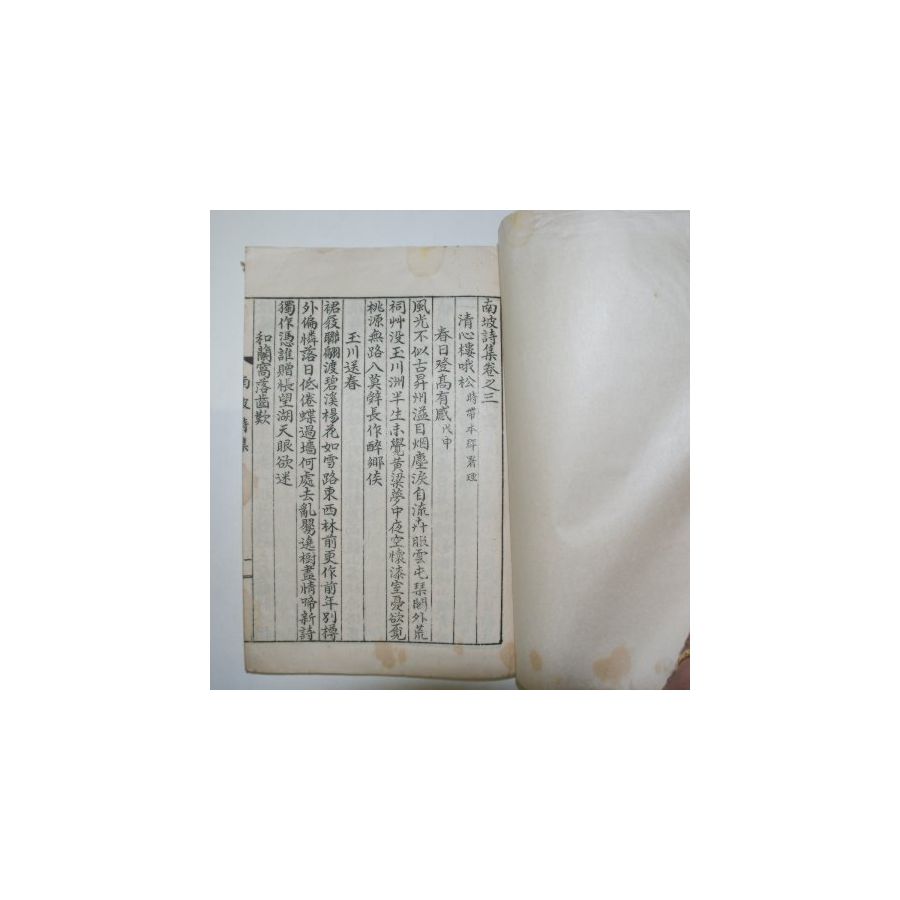 南坡詩集卷之三
清心樓哦松 時帶本
春日登高有感 戊申
風光不似古昇州溢目烟塵淚自流卉服雲屯琹閣外荒
祠艸没玉川洲半生未覺黃粱夢中夜空懷漆室憂欲覓
桃源無路入莫辭長作醉鄉侯
玉川送春
裙屐聯翩渡碧溪楊花如雪路東西林前更作前年別樽
外偏憐落日低倦蝶過墻何處去亂鶯遶樹盡情啼新詩
獨作憑誰贈悵望湖天眼欲迷
和蘭窩落齒歎
南坡詩集